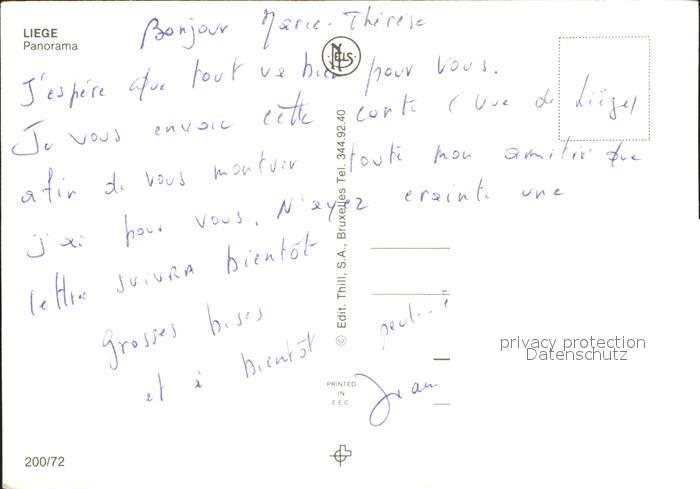 LIEGE
Panorama
Bonjour Marie-Thérèse
J'espère que tout va bien pour vous.
Je vous envoie cette carte (vue de Liège)
afin de vous montrer toute mon amitié que
j'ai pour vous. N'ayez crainte une
lettre SUIVRA bientôt
Grosses bises
et à bientôt peut..
Jean
NELS
© Edit. Thill, S.A., Bruxelles Tel. 344.92.40
PRINTED
IN
E.E.C.
200/72
privacy protection
Datenschutz